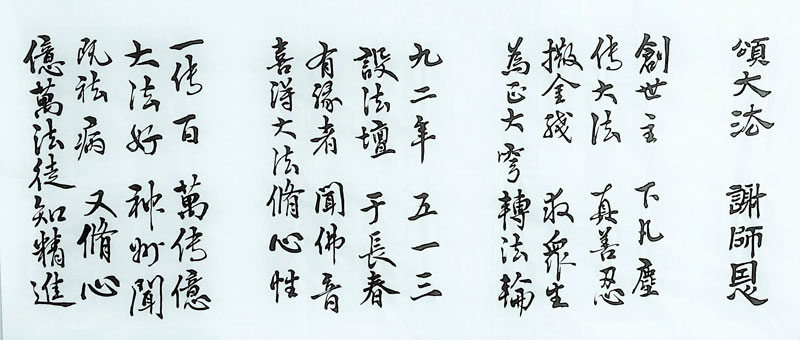 頌大法 謝師恩
創世主 下凡塵
传大法 真善忍
撒金线 救眾生
為正大穹轉法輪
九二年 五一三
設法壇 于長春
有緣者 聞佛音
喜得大法脩心性
一传百 萬传億
大法好 神州聞
既祛病 又脩心
億萬法徒知精進